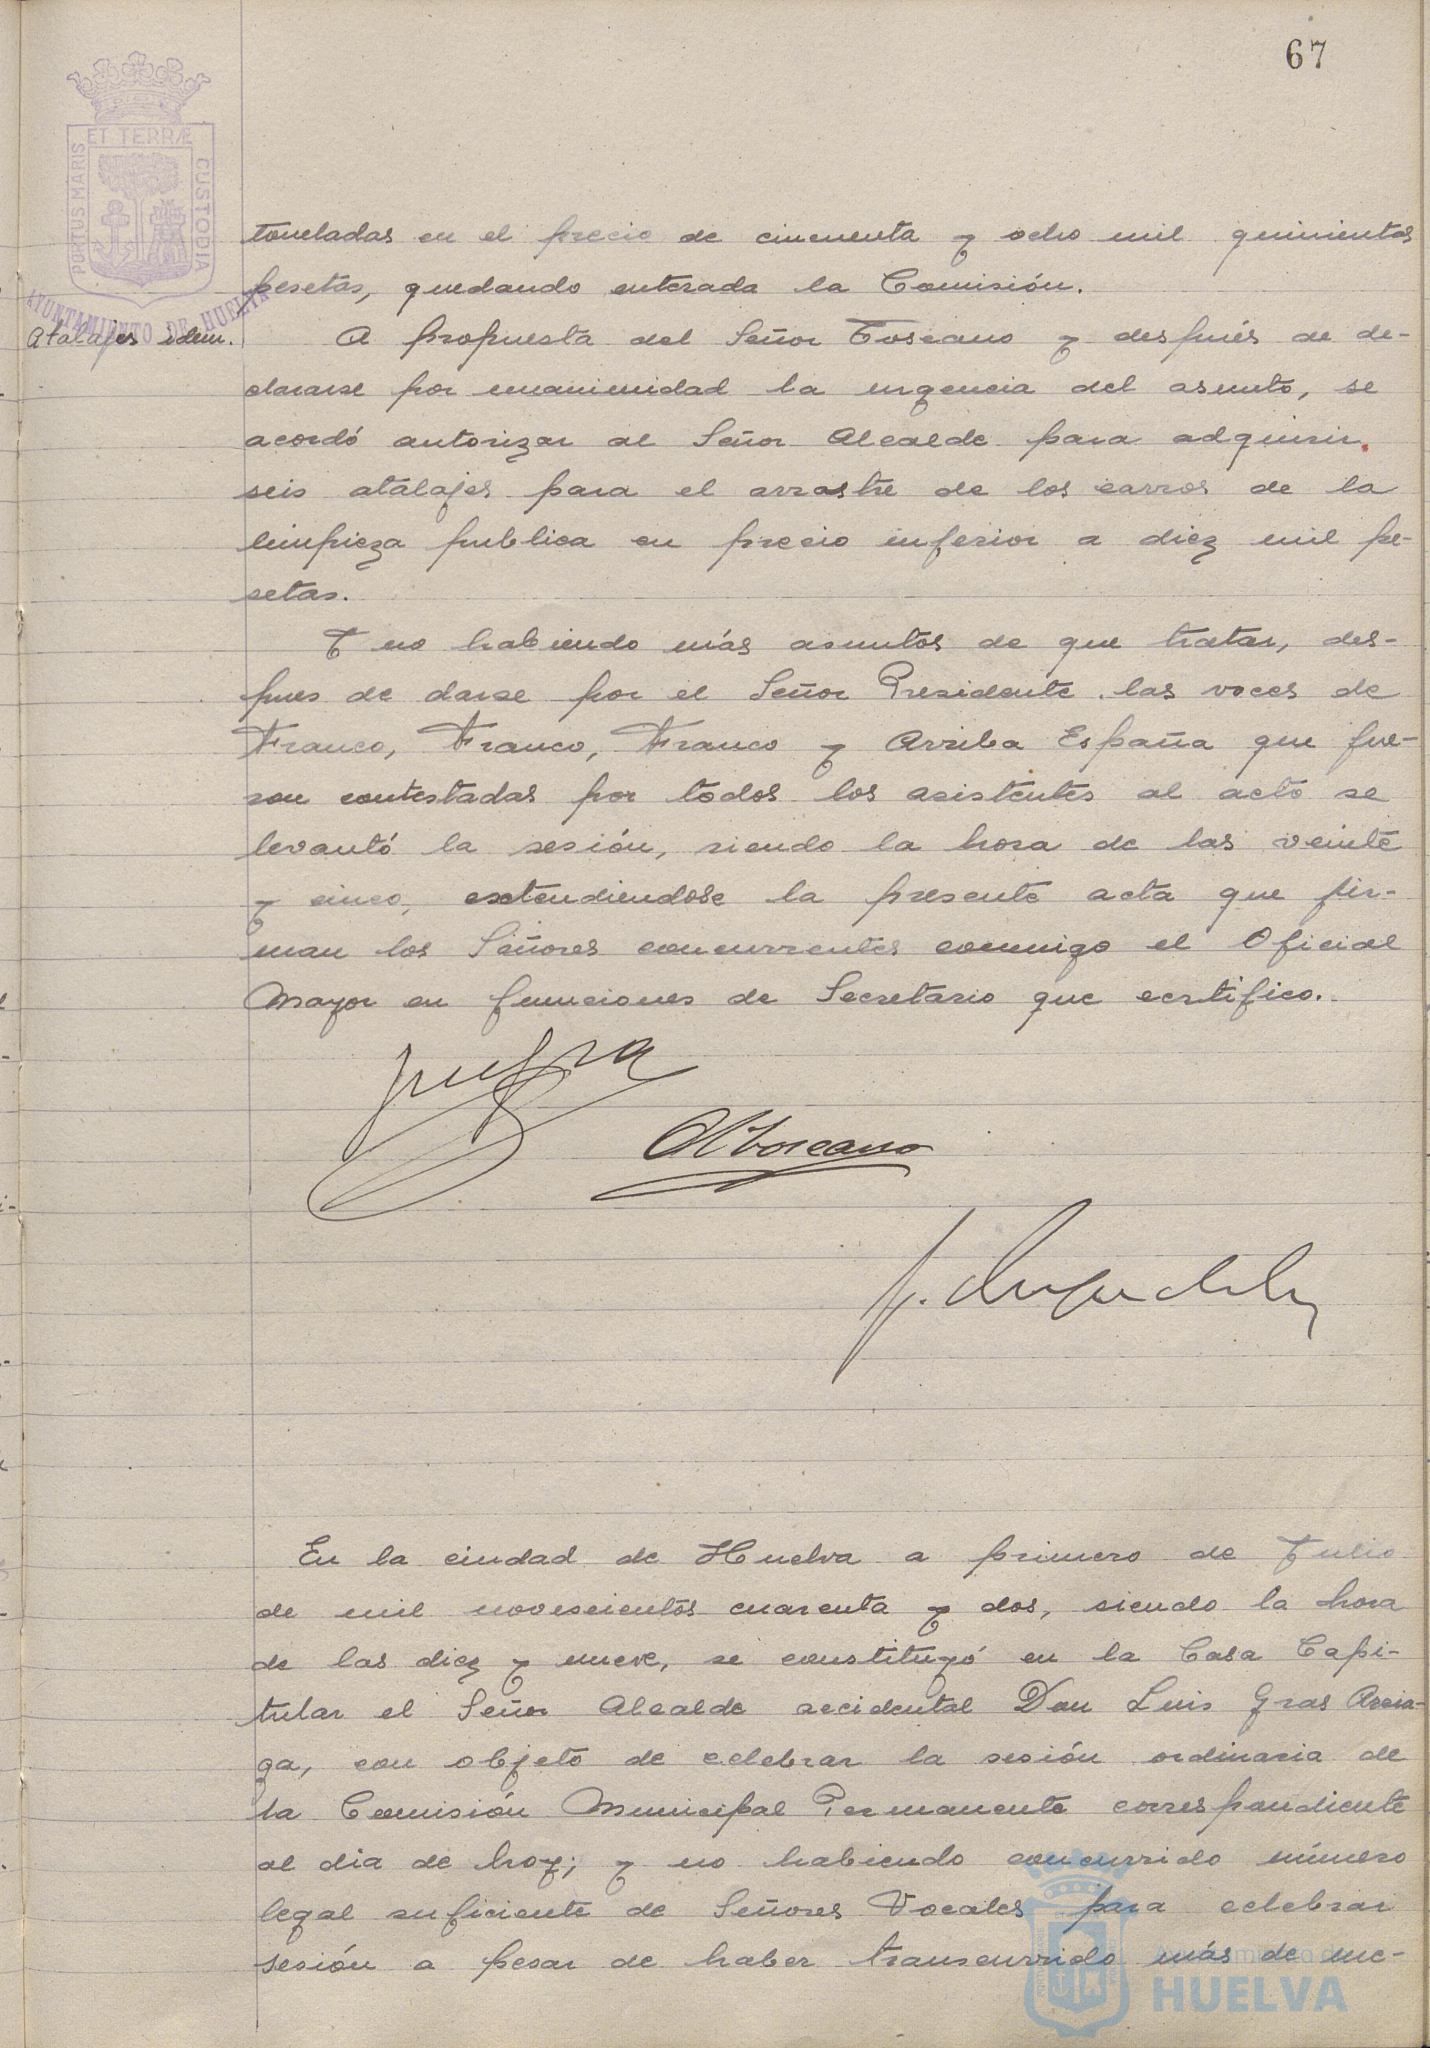 67
PORTUS MARIS ET TERRÆ CUSTODIA
AYUNTAMIENTO DE HUELVA
toneladas en el precio de cincuenta y ocho mil quinientas
pesetas, quedando enterada la Comisión.
Atalajes idem.
A propuesta del Señor Toscano y después de de-
clararse por unanimidad la urgencia del asunto, se
acordó autorizar al Señor Alcalde para adquirir
seis atalajes para el arrastre de los carros de la
limpieza publica en precio inferior a diez mil pe-
setas.
Y no habiendo más asuntos de que tratar, des-
pues de darse por el Señor Presidente las voces de
Franco, Franco, Franco y Arriba España que fue-
ron contestadas por todos los asistentes al acto se
levantó la sesión, siendo la hora de las veinte
y cinco, extendiendose la presente acta que fir-
man los Señores concurrentes conmigo el Oficial
Mayor en funciones de Secretario que certifico.
Toscano
En la ciudad de Huelva a primero de Julio
de mil novescientos cuarenta y dos, siendo la hora
de las diez y nueve, se constituyó en la Casa Capi-
tular el Señor Alcalde accidental Don Luis Gras Arcia-
ga, con objeto de celebrar la sesión ordinaria de
la Comisión Municipal Permanente correspondiente
al dia de hoy; y no habiendo concurrido número
legal suficiente de Señores Vocales para celebrar
sesión a pesar de haber transcurrido más de me-
Ayuntamiento de
HUELVA